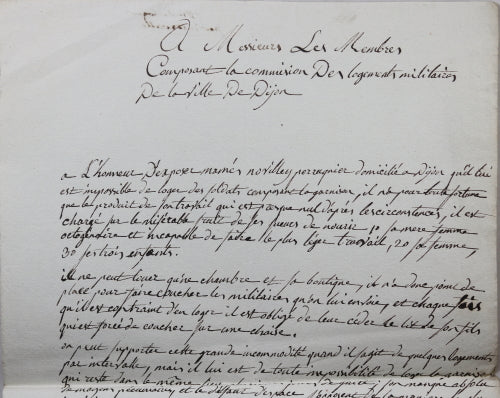 A Messieurs Les Membres
Composant la commision Des logements militaires
De la ville De Dijon
a L'honneur D'exposer mamés novilley perruquier domicilié a Dijon qu'il lui
est impossible de loger des soldats composant la garnison, il n'a pour toute fortune
que le produit de son travail qui est presque nul d'après les circonstances, il est
chargé sur le misérable fruit de ses sueurs de nourir 1o sa mere femme
octogénaire et incapable de faire le plus léger travail, 2o sa femme,
3o ses trois enfants.
il ne peut louer qu'une chambre et sa boutique, il n'a donc point de
place pour faire coucher les militaires qu'on lui envoie, et chaque fois
qu'il est contraint d'en loger il est obligé de leur céder le lit de son fils
qui est forcé de coucher sur une chaise.
on peut supporter cette grande incommodité quand il s'agit de quelques logements
par intervalle, mais il lui est de toute impossibilité de loger la garnison
qui reste dans le même
de moyens pécuniaires et le défaut d'espace